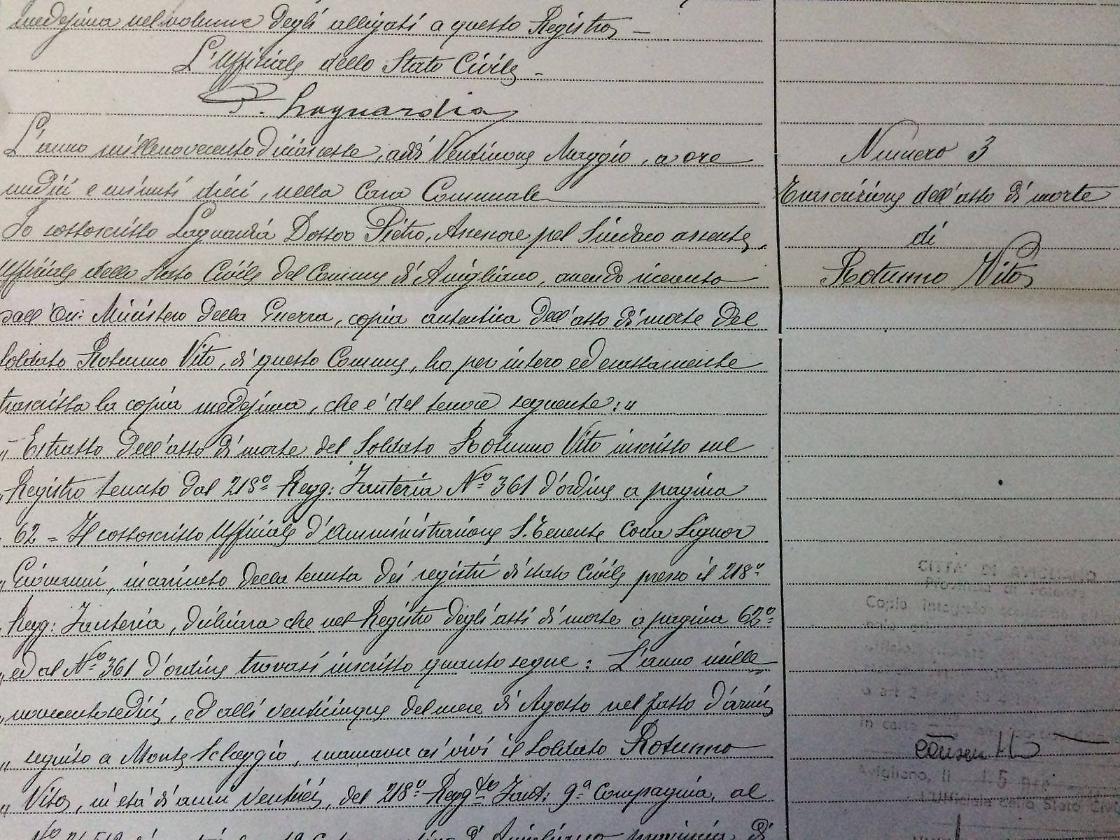 medesima nel volume degli allegati a questo Registro —
L'Ufficiale dello Stato Civile -
P. Laguardia
L'anno millenovecentodiciassette, addì Ventinove Maggio, a ore
undici e minuti dieci, nella Casa Comunale
Io sottoscritto Laguardia Dottor Pietro, Assessore pel Sindaco assente,
Ufficiale dello Stato Civile del Comune di Avigliano, avendo ricevuto
dall'On: Ministero della Guerra, copia autentica dell'atto di morte del
Soldato Rotunno Vito, di questo Comune, ho per intero ed esattamente
trascritta la copia medesima, che è del tenore seguente: „
„ Estratto dell'atto di morte del Soldato Rotunno Vito inscritto sul
„ Registro tenuto dal 218º Regg: Fanteria Nº 361 d'ordine a pagina
„ 62 = Il sottoscritto Ufficiale d'Amministrazione S. Tenente Signor
„ Giovanni, incaricato della tenuta dei registri di stato Civile presso il 218º
„ Regg: Fanteria, dichiara che nel Registro degli atti di morte a pagina 62ª
„ ed al Nº 361 d'ordine trovasi inscritto quanto segue: L'anno mille
„ novecentosedici, ed alli venticinque del mese di Agosto nel fatto d'armi
„ seguito a Monte, mancava ai vivi il Soldato Rotunno
„ Vito, in età di anni Ventisei, del 218º Reggto Fant: 9ª Compagnia, al
Numero 3
Trascrizione dell'atto di morte
di
Rotunno Vito
CITTA' DI AVIGLIANO
Provincia di Potenza
Copia integrale
in carta
Avigliano, li 15
L'Ufficiale dello Stato